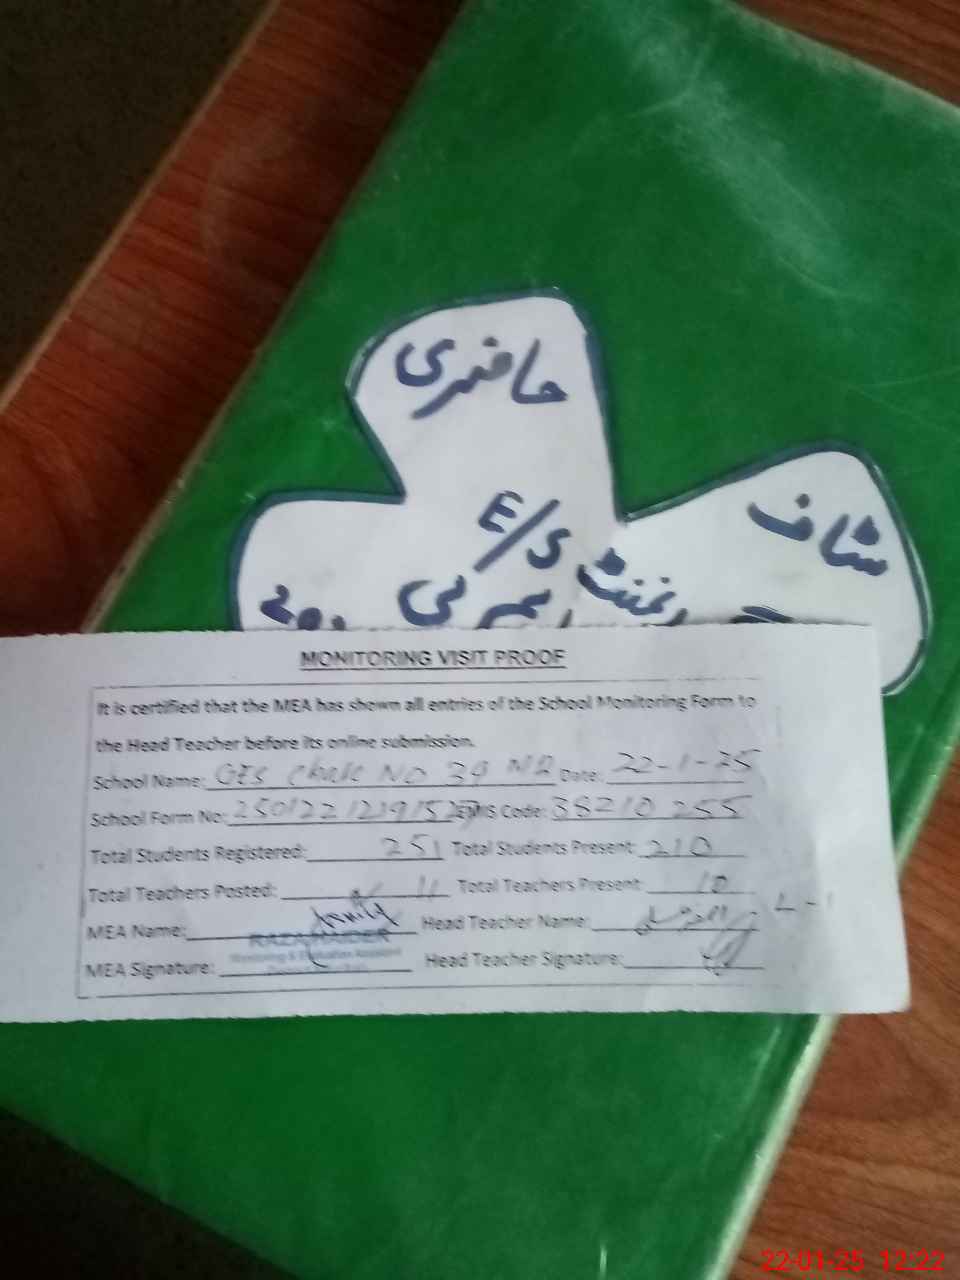 حاضری
سٹاف
E/S
MONITORING VISIT PROOF
It is certified that the MEA has shown all entries of the School Monitoring Form to
the Head Teacher before its online submission.
School Name: GES Chak NO 39 NB Date: 22-1-25
School Form No: EMIS Code: 38210255
Total Students Registered: 251 Total Students Present: 210
Total Teachers Posted: 11 Total Teachers Present: 10
MEA Name: Head Teacher Name:
RAZA HAIDER
Monitoring & Evaluation Assistant
MEA Signature: Head Teacher Signature:
22-01-25 12:22